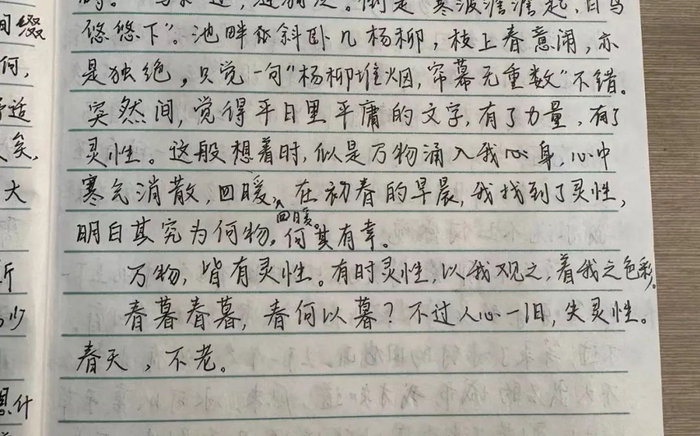 的。
寒波澹澹起,白鸟
悠悠下”。池畔斜卧几杨柳,枝上春意闹,亦
是独绝,只觉一句“杨柳堆烟,帘幕无重数”不错。
突然间,觉得平日里平庸的文字,有了力量,有了
灵性。这般想着时,似是万物涌入我心身,心中
寒气消散,回暖,回暖。在初春的早晨,我找到了灵性,
明白其究为何物,何其有幸。
万物,皆有灵性。有时灵性,以我观之,着我之色彩。
春暮春暮,春何以暮?不过人心一旧,失灵性。
春天,不老。
间缀
何,
适
矣,
大
所
少
什